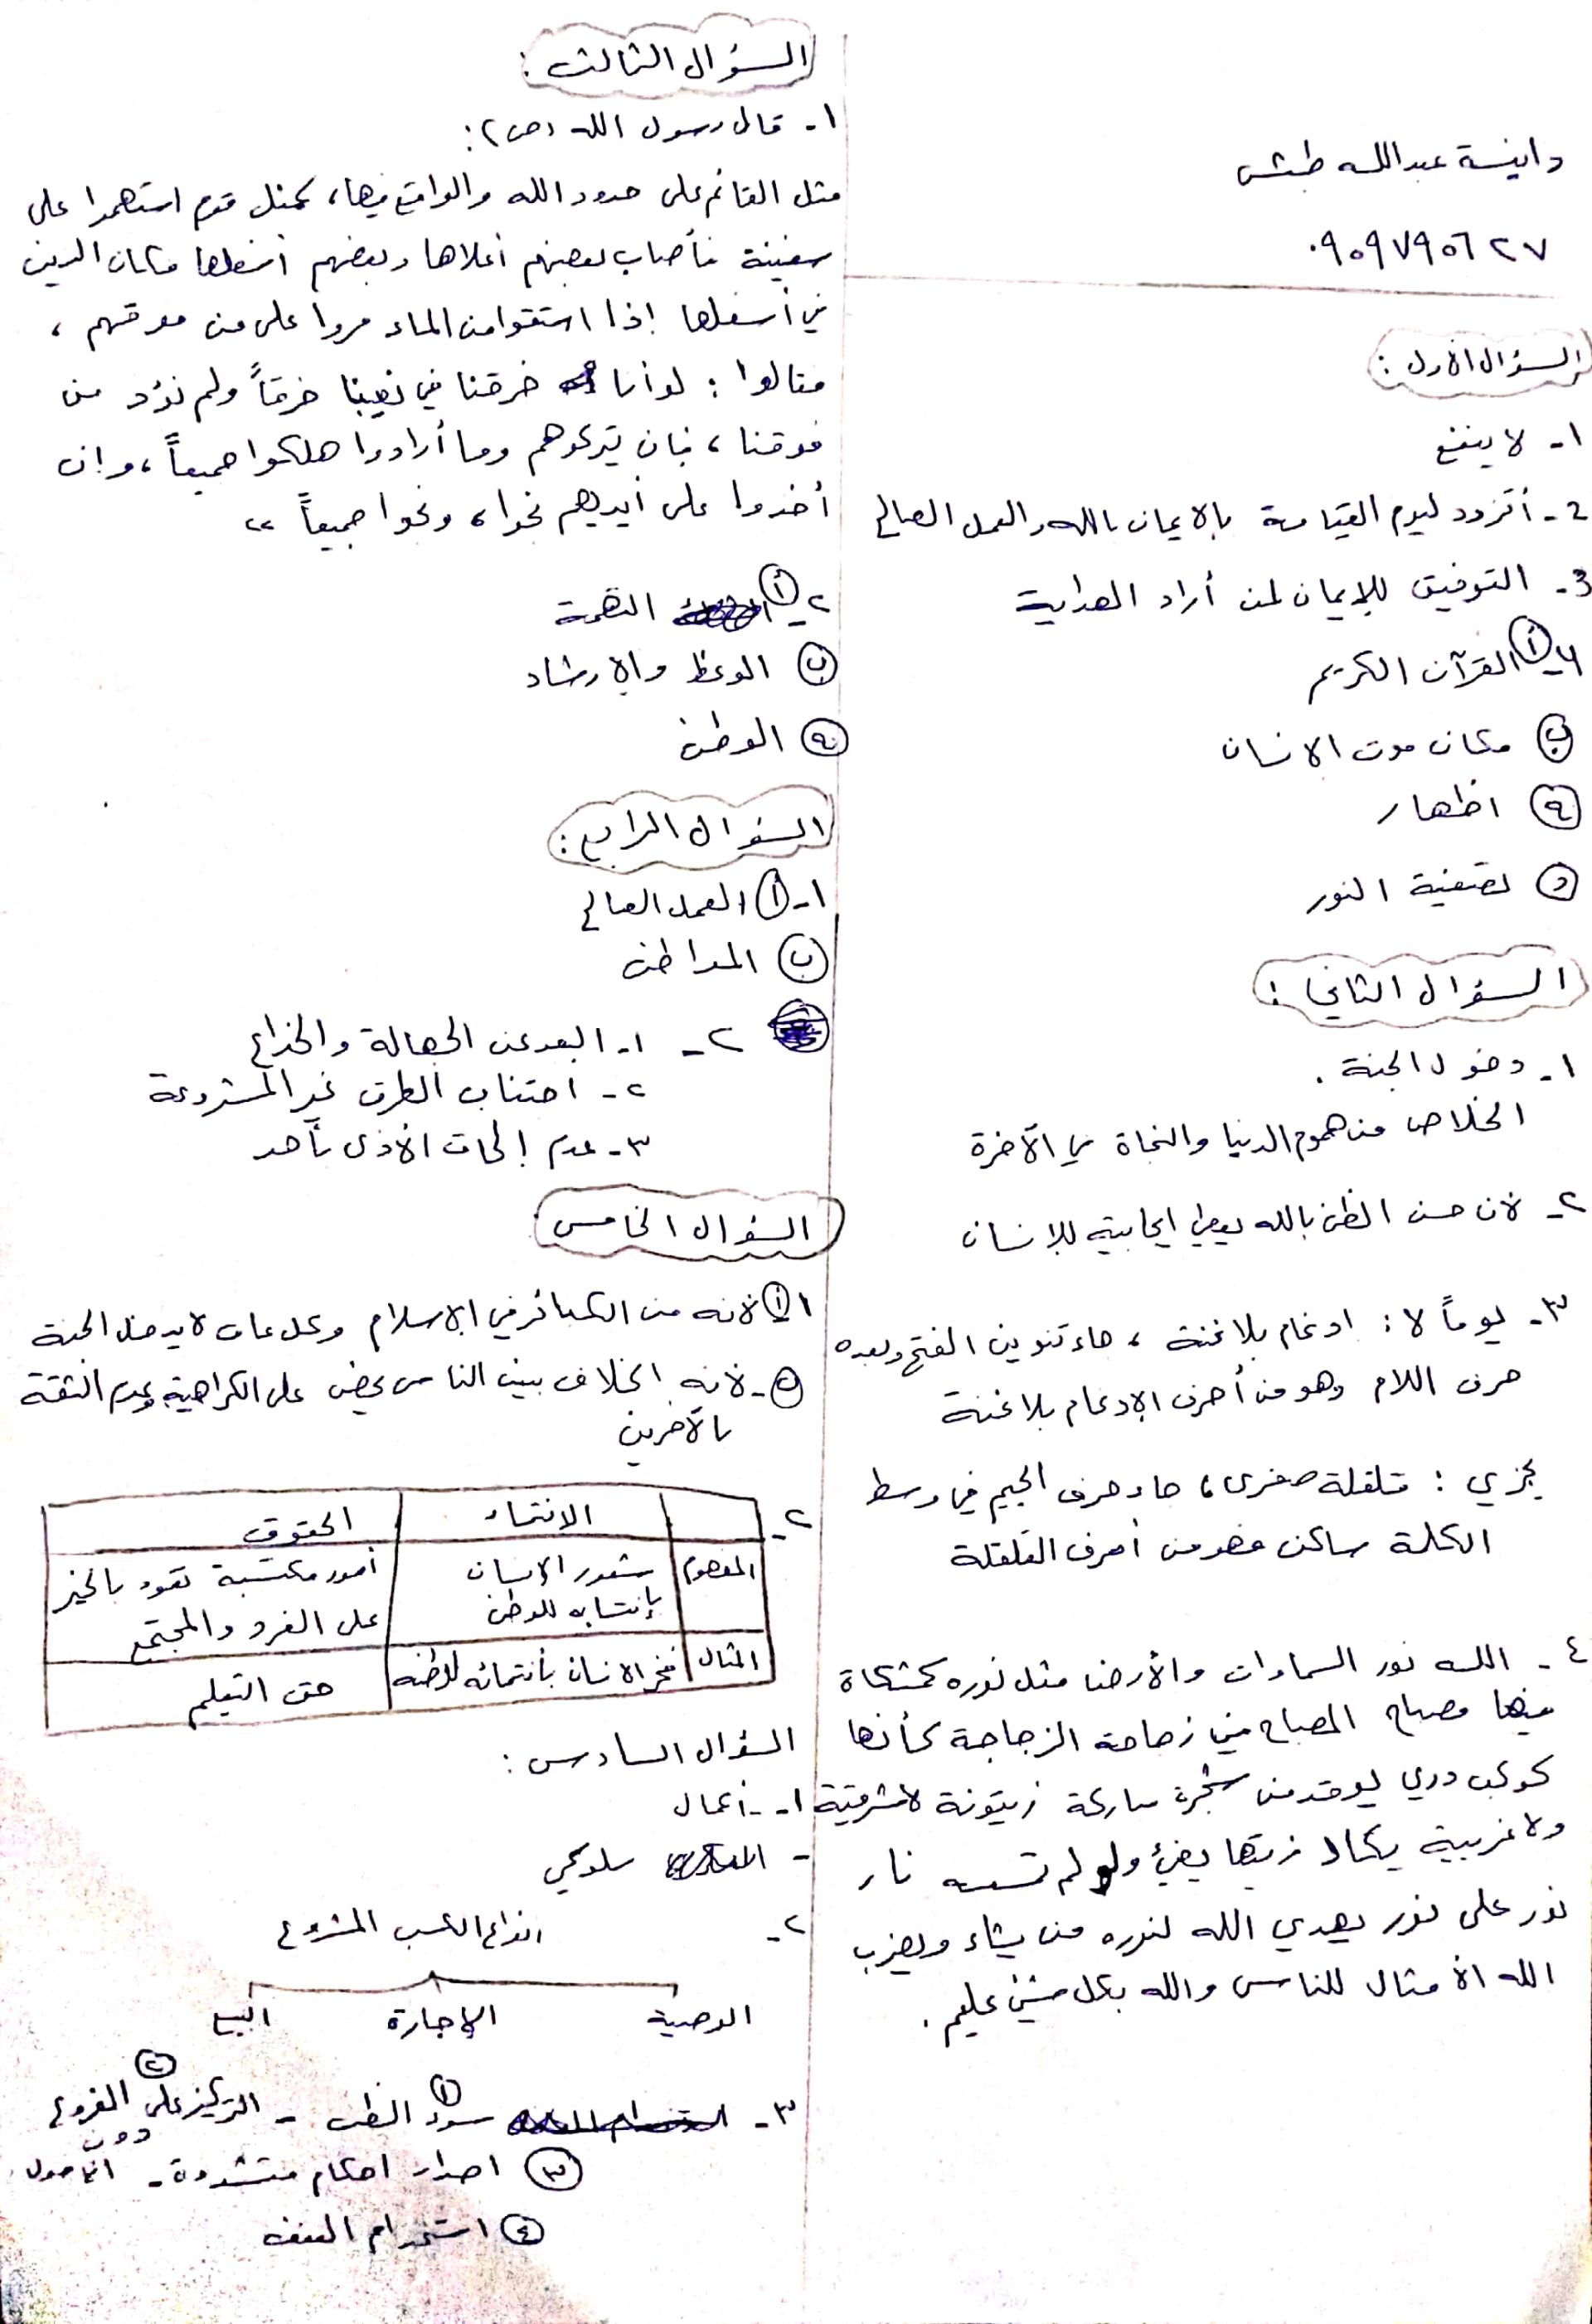 دانيسة عبدالله طبش
٠٩٥٩٧٩٥٦٢٧
السؤال الأول :
١- لا ينفع
2- أتزود ليوم القيامة بالايمان بالله والعمل الصالح
3- التوفيق للإيمان لمن أراد الهداية
4- أ القرآن الكريم
ب مكان موت الانسان
ج اظهار
د تصفية النور
السؤال الثاني :
١- دخول الجنة .
الخلاص من هموم الدنيا والنجاة في الآخرة
٢- لأن حسن الظن بالله يعطي ايجابية للإنسان
٣- يوماً لا : ادغام بلاغنة ، جاء تنوين الفتح وبعده
حرف اللام وهو من أحرف الإدغام بلاغنة
يجزي : قلقلة صغرى ، جاء حرف الجيم في وسط
الكلمة ساكن فهو من أحرف القلقلة
٤- الله نور السماوات والأرض مثل نوره كمشكاة
فيها مصباح المصباح في زجاجة الزجاجة كأنها
كوكب دري يوقد من شجرة مباركة زيتونة لا شرقية
ولا غربية يكاد زيتها يضيئ ولو لم تمسسه نار
نور على نور يهدي الله لنوره من يشاء ويضرب
الله الأمثال للناس والله بكل شيئ عليم .
السؤال الثالث :
١- قال رسول الله (ص) :
مثل القائم على حدود الله والواقع فيها ، كمثل قوم استهموا على
سفينة فأصاب بعضهم أعلاها وبعضهم أسفلها فكان الذين
في أسفلها إذا استقوا من الماء مروا على من فوقهم ،
فقالوا : لو أنا خرقنا في نصيبنا خرقاً ولم نؤذ من
فوقنا ، فإن يتركوهم وما أرادوا هلكوا جميعاً ، وإن
أخذوا على أيديهم نجوا ، ونجوا جميعاً "
٢- أ التهمة
ب الوعظ والإرشاد
ج الوطن
السؤال الرابع :
١- أ العمل الصالح
ب المواطن
٢- ١- البعد عن الجهالة والخداع
٢- اجتناب الطرق غير المشروعة
٣- عدم إلحاق الأذى بأحد
السؤال الخامس :
١ أ لأنه من الكبائر في الإسلام وكل عاق لا يدخل الجنة
ب- لأنه الخلاف بين الناس يحض على الكراهية وعدم الثقة
بالآخرين
٢- الانتماء الحقوق
المفهوم شعور الإنسان بإنتسابه للوطن أمور مكتسبة تعود بالخير على الفرد والمجتمع
المثال فخر الانسان بأنتمائه لوطنه حق التعلم
السؤال السادس :
١- - أعمال
- سلوكي
٢- انواع الكسب المشروع
الوصية الإجارة البيع
٣- ١ سوء الظن - ٢ التركيز على الفروع
دون الأصول
٣ اصدار احكام متشددة -
٤ استخدام العنف